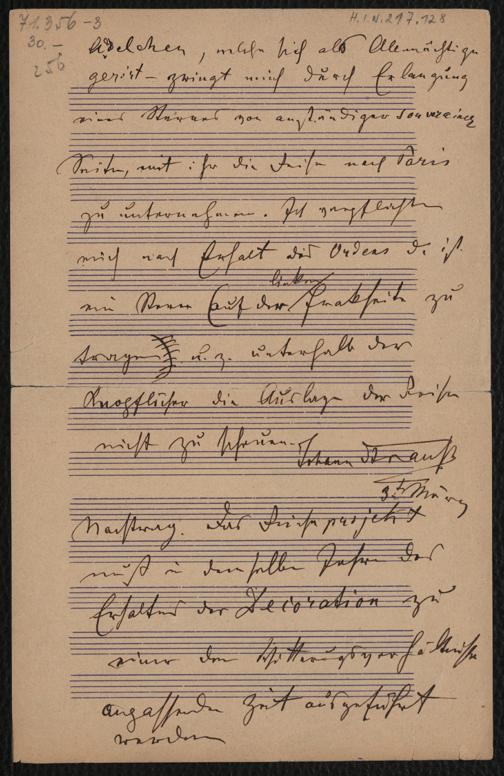 71.356-3
H.I.N. 217.128
30.-
256
Adelchen, welche sich als Allmächtige
gerirt - zwingt mich durch Erlangung
eines Sternes von anständiger souverainer
Seite, mit ihr die Reise nach Paris
zu unternehmen. Ich verpflichte
mich nach Erhalt des Ordens d. i.
ein Stern (auf der linken Frakseite zu
tragen) u. z. unterhalb der
Knopflöcher die Auslage der Reise
nicht zu scheuen.
Johann Strauß
März
Nachtrag. Das Reiseprojekt
muß in demselben Jahre des
Erhaltes der Decoration zu
einer den Witterungsverhältnissen
anpassenden Zeit ausgeführt
werden